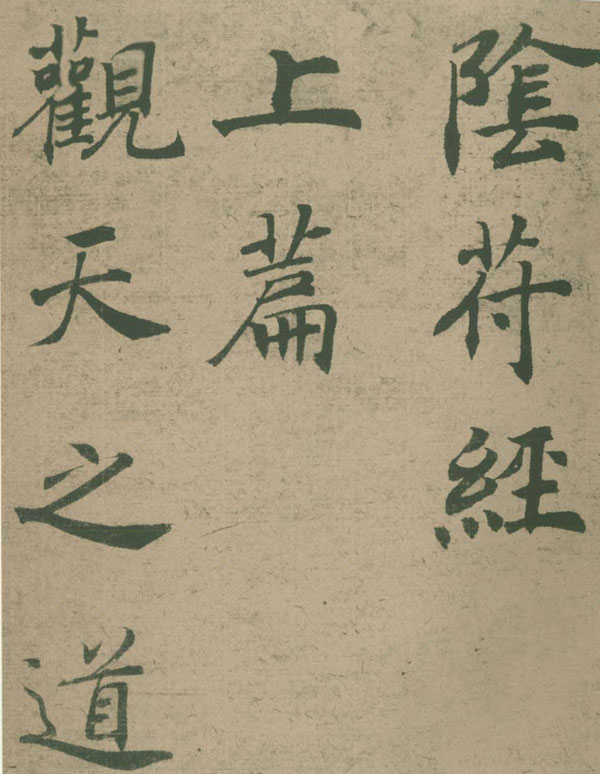 陰符經
上篇
觀天之道